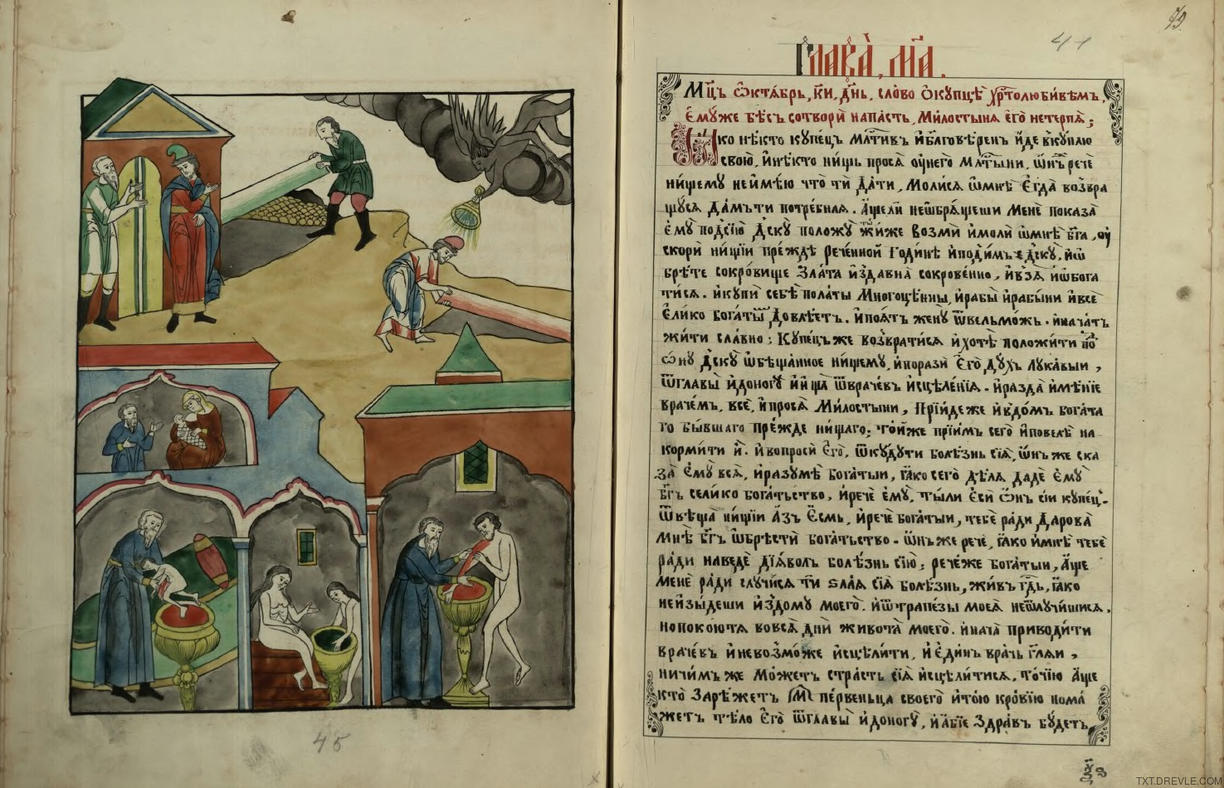 45
49
41
Глава̀, м҃а.
Мц҃ъ ѻктѧ́брь, к҃и, дн҃ь, сло́во ѻкꙋпцѣ̀ хр҃толюби́вѣмъ,
є҆мꙋ́же бѣ́съ сотворѝ напа́сть, ми́лостынѧ є҆гѡ̀ нетерпѧ̀;
Ꙗ҆́ко нѣ́кто кꙋпе́цъ мл҃тивъ и҆бл҃говѣ́ренъ и҆́де вкꙋплю
свою̀, и҆нѣ́кто ни́щь просѧ̀ ᲂу҆него̀ мл҃тыни, ѡ҆́нъ речѐ
ни́щемꙋ неи҆мѣ́ю что̀ тѝ да́ти, моли́сѧ ѡ҆мнѣ̀ є҆гда̀ возвра
щꙋ́сѧ да́мъ ти потре́бнаѧ. а҆́щели неѡбрѧ́щеши менѐ показа̀
є҆мꙋ̀ подсїю̀ дскꙋ̀ положꙋ̀ ꙗ҆́же возмѝ и҆молѝ ѡ҆мнѣ̀ бг҃а, ᲂу҆
скорѝ ни́щїи пре́ждѣ рече́нной годи́нѣ и҆поди́мъ дскꙋ̀, и҆ѡ
брѣ́те сокро́вище зла́та и҆здавна̀ сокрове́нно, и҆взѧ̀ и҆ѡбога
ти́сѧ. и҆кꙋпѝ себѣ̀ пола́ты многоцѣ́нны, и҆рабы̀ и҆рабы́ни и҆всѐ
є҆ли́ко бога́тымъ довлѣ́етъ. и҆поѧ́тъ женꙋ̀ ѿвельмо́жь. и҆нача́тъ
жи́ти сла́вно; кꙋпе́цъ же возврати́сѧ и҆хотѣ̀ положи́ти под̾
ѻ҆́нꙋ дскꙋ̀ ѡбѣща́нное ни́щемꙋ, и҆поразѝ є҆го̀ дꙋ́хъ лꙋка́выи,
ѿглавы̀ и҆до́ногꙋ и҆ и҆ща̀ ѿвраче́въ и҆сцѣле́нїѧ. и҆разда̀ и҆мѣ́нїе
враче́мъ, всѐ, и҆просѧ̀ ми́лостыни, прїи́де же и҆вдо́мъ бога́та
го бы́вшаго пре́жде ни́щаго; то́йже прїи́мъ сего̀ и҆повелѣ̀ на
корми́ти и҆̀. и҆вопросѝ є҆го̀, ѿкꙋ́дꙋти болѣ́знь сїѧ̀, ѡ҆́нъ же ска
за̀ є҆мꙋ̀ всѧ̀, и҆разꙋмѣ̀ бога́тыи, ꙗ҆́ко сего̀ дѣ́лѧ дадѐ є҆мꙋ̀
бг҃ъ сели́ко бога́тьство, и҆речѐ є҆мꙋ̀, ты́ли є҆сѝ ѻ҆́нъ сїи кꙋпе́цъ
ѿвѣща̀ ни́щїи а҆́зъ є҆́смь, и҆речѐ бога́тыи, тебѐ ра́ди дарова̀
мнѣ̀ бг҃ъ ѡбрѣ́сти бога́тьство. ѡ҆́нъ же речѐ, ꙗ҆́ко и҆мнѣ̀ тебѐ
ра́ди наведѐ дїѧ́волъ болѣ́знь сїю̀; рече́же бога́тыи, а҆́ще
менѐ ра́ди слꙋчи́сѧ ти ѕла́ѧ сїѧ̀ болѣ́знь, жи́въ гд҃ь, ꙗ҆́ко
неи҆зы́деши и҆здо́мꙋ моего̀. и҆ѿтрапе́зы моеѧ̀ неѿлꙋчи́шисѧ,
но поко́ютѧ вовсѧ̀ дни̑ живота̀ моего̀. и҆нача̀ приводи́ти
враче́въ и҆невозмо́же и҆сцѣли́ти, и҆ є҆ди́нъ вра́чь гл҃ѧи,
ничи́мъ же мо́жетъ стра́сть сїѧ̀ и҆сцѣли́тисѧ, то́чїю а҆́ще
кто̀ зарѣ́жетъ пе́рвенца своего̀ и҆то́ю кро́вїю пома́
жетъ тѣ́ло є҆гѡ̀ ѿглавы̀ и҆до́ногꙋ, и҆а҆́бїе здра́въ бꙋ́детъ,
TXT.DREVLE.COM